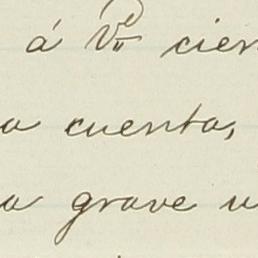 á Vd cien
a cuenta,
a grave u